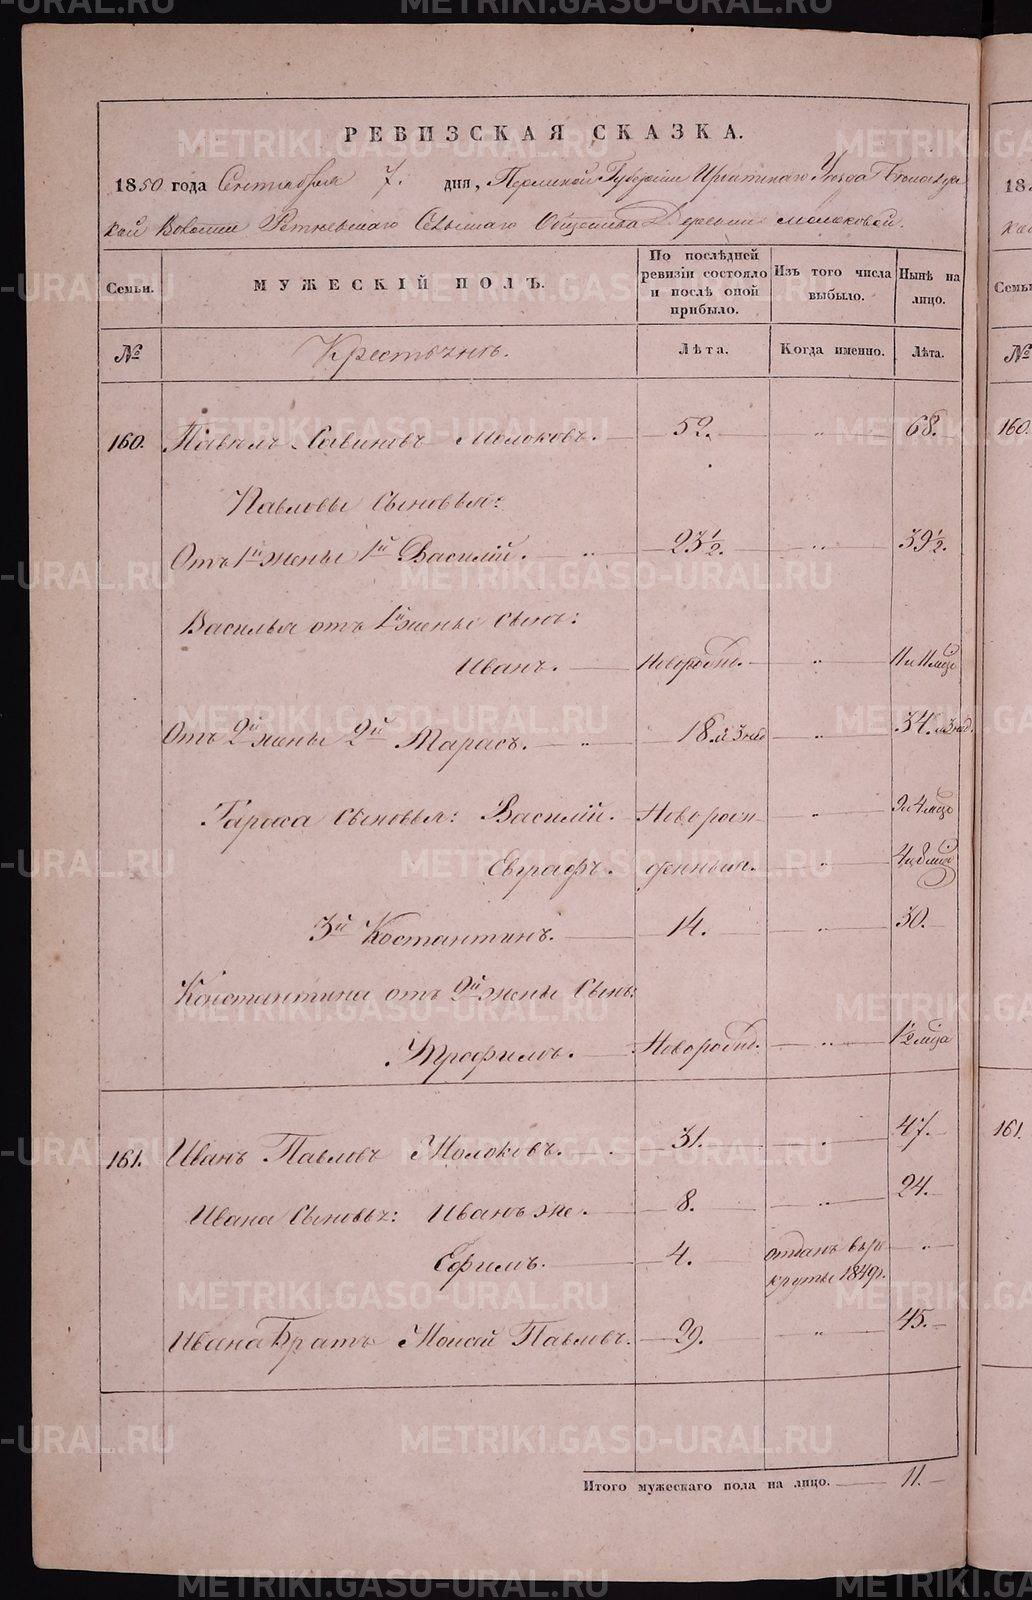 РЕВИЗСКАЯ СКАЗКА.
1850 года Сентября 7. дня, Пермской Губернiи Ирбитскаго Уѣзда
кой Волости Сельскаго Общества Деревни Молоковой.
Семьи.
МУЖЕСКІЙ ПОЛЪ.
По послѣдней ревизіи состояло и послѣ оной прибыло.
Изъ того числа выбыло.
Нынѣ на лицо.
№
Крестьянъ.
Лѣта.
Когда именно.
Лѣта.
160. Павелъ Савиновъ Молоковъ. 52. „ 68.
Павловы Сыновья:
Отъ 1й жены 1й Василій. „ 23 1/2. „ 39 1/2.
Василья отъ 1й жены Сынъ:
Иванъ. Новорожд. „ 11 и 11 мцѣ
Отъ 2й жены 2й Тарасъ. „ 18. и 3 нед „ 34. и 3 нед.
Тараса Сыновья: Василій. Новорож „ 9 и 4 мцѣ
Евграфъ. денныи. „ 4 и 8 мцѣ
3й Костантинъ. 14. „ 30.
Константина отъ 2й жены Сынъ:
Трофимъ. Новорожд. „ 1/2 мца
161. Иванъ Павловъ Молоковъ. 31. „ 47.
Ивана Сыновья: Иванъ же. 8. „ 24.
Ефимъ. 4. отданъ въ ре „
круты 1849 г.
Ивана Братъ Моисей Павловъ. 29. „ 45.
Итого мужескаго пола на лицо. 11.
160.
161.
METRIKI.GASO-URAL.RU